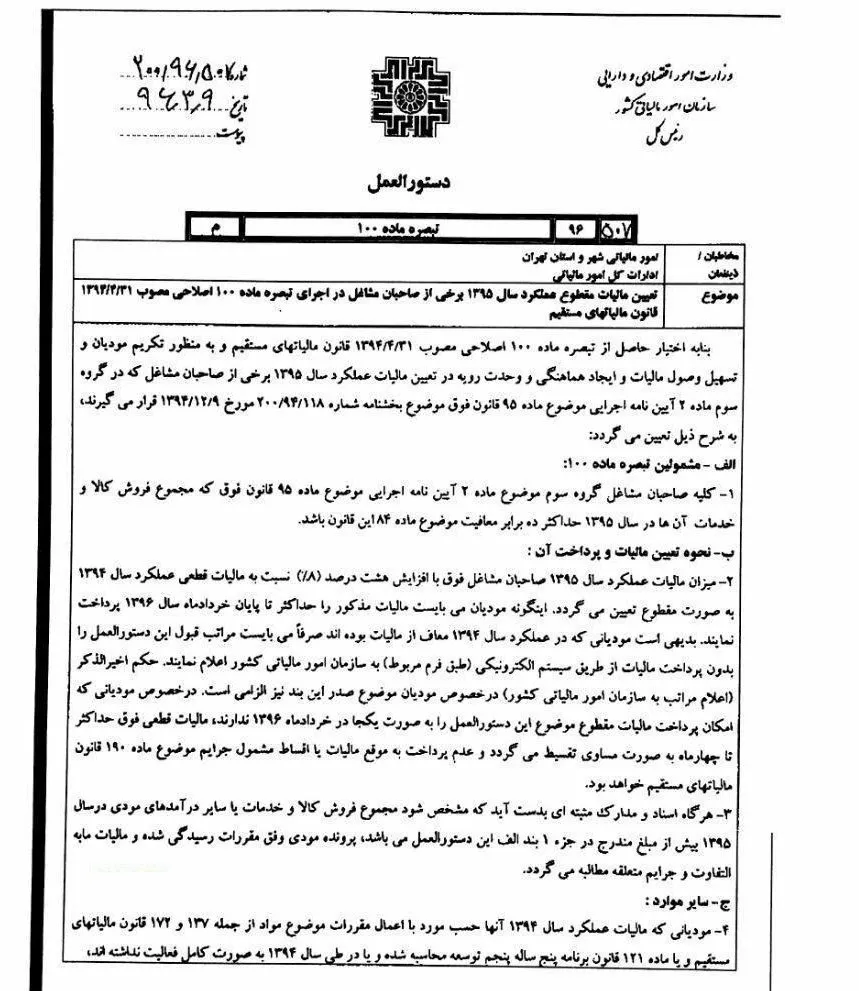 وزارت امور اقتصادی و دارایی
سازمان امور مالیاتی کشور
رئیس کل
شماره ۲۰۰/۹۶/۵۰۷
تاریخ ۹۶/۳/۹
پیوست
دستورالعمل
۵۰۷ ۹۶ تبصره ماده ۱۰۰ م
مخاطبان / ذینفعان
امور مالیاتی شهر و استان تهران
ادارات کل امور مالیاتی
موضوع تعیین مالیات مقطوع عملکرد سال ۱۳۹۵ برخی از صاحبان مشاغل در اجرای تبصره ماده ۱۰۰ اصلاحی مصوب ۱۳۹۴/۴/۳۱
قانون مالیاتهای مستقیم
بنابه اختیار حاصل از تبصره ماده ۱۰۰ اصلاحی مصوب ۱۳۹۴/۴/۳۱ قانون مالیاتهای مستقیم و به منظور تکریم مودیان و
تسهیل وصول مالیات و ایجاد هماهنگی و وحدت رویه در تعیین مالیات عملکرد سال ۱۳۹۵ برخی از صاحبان مشاغل که در گروه
سوم ماده ۲ آیین نامه اجرایی موضوع ماده ۹۵ قانون فوق موضوع بخشنامه شماره ۲۰۰/۹۴/۱۱۸ مورخ ۱۳۹۴/۱۲/۹ قرار می گیرند،
به شرح ذیل تعیین می گردد:
الف - مشمولین تبصره ماده ۱۰۰:
۱- کلیه صاحبان مشاغل گروه سوم موضوع ماده ۲ آیین نامه اجرایی موضوع ماده ۹۵ قانون فوق که مجموع فروش کالا و
خدمات آن ها در سال ۱۳۹۵ حداکثر ده برابر معافیت موضوع ماده ۸۴ این قانون باشد.
ب- نحوه تعیین مالیات و پرداخت آن :
۲- میزان مالیات عملکرد سال ۱۳۹۵ صاحبان مشاغل فوق با افزایش هشت درصد (۸٪) نسبت به مالیات قطعی عملکرد سال ۱۳۹۴
به صورت مقطوع تعیین می گردد. اینگونه مودیان می بایست مالیات مذکور را حداکثر تا پایان خردادماه سال ۱۳۹۶ پرداخت
نمایند. بدیهی است مودیانی که در عملکرد سال ۱۳۹۴ معاف از مالیات بوده اند صرفاً می بایست مراتب قبول این دستورالعمل را
بدون پرداخت مالیات از طریق سیستم الکترونیکی (طبق فرم مربوط) به سازمان امور مالیاتی کشور اعلام نمایند. حکم اخیرالذکر
(اعلام مراتب به سازمان امور مالیاتی کشور) درخصوص مودیان موضوع صدر این بند نیز الزامی است. درخصوص مودیانی که
امکان پرداخت مالیات مقطوع موضوع این دستورالعمل را به صورت یکجا در خردادماه ۱۳۹۶ ندارند، مالیات قطعی فوق حداکثر
تا چهارماه به صورت مساوی تقسیط می گردد و عدم پرداخت به موقع مالیات یا اقساط مشمول جرایم موضوع ماده ۱۹۰ قانون
مالیاتهای مستقیم خواهد بود.
۳- هرگاه اسناد و مدارک مثبته ای بدست آید که مشخص شود مجموع فروش کالا و خدمات یا سایر درآمدهای مودی درسال
۱۳۹۵ بیش از مبلغ مندرج در جزء ۱ بند الف این دستورالعمل می باشد، پرونده مودی وفق مقررات رسیدگی شده و مالیات مابه
التفاوت و جرایم متعلقه مطالبه می گردد.
ج- سایر موارد :
۴- مودیانی که مالیات عملکرد سال ۱۳۹۴ آنها حسب مورد با اعمال مقررات موضوع مواد از جمله ۱۳۷ و ۱۷۲ قانون مالیاتهای
مستقیم و یا ماده ۱۲۱ قانون برنامه پنج ساله پنجم توسعه محاسبه شده و یا در طی سال ۱۳۹۴ به صورت کامل فعالیت نداشته اند،